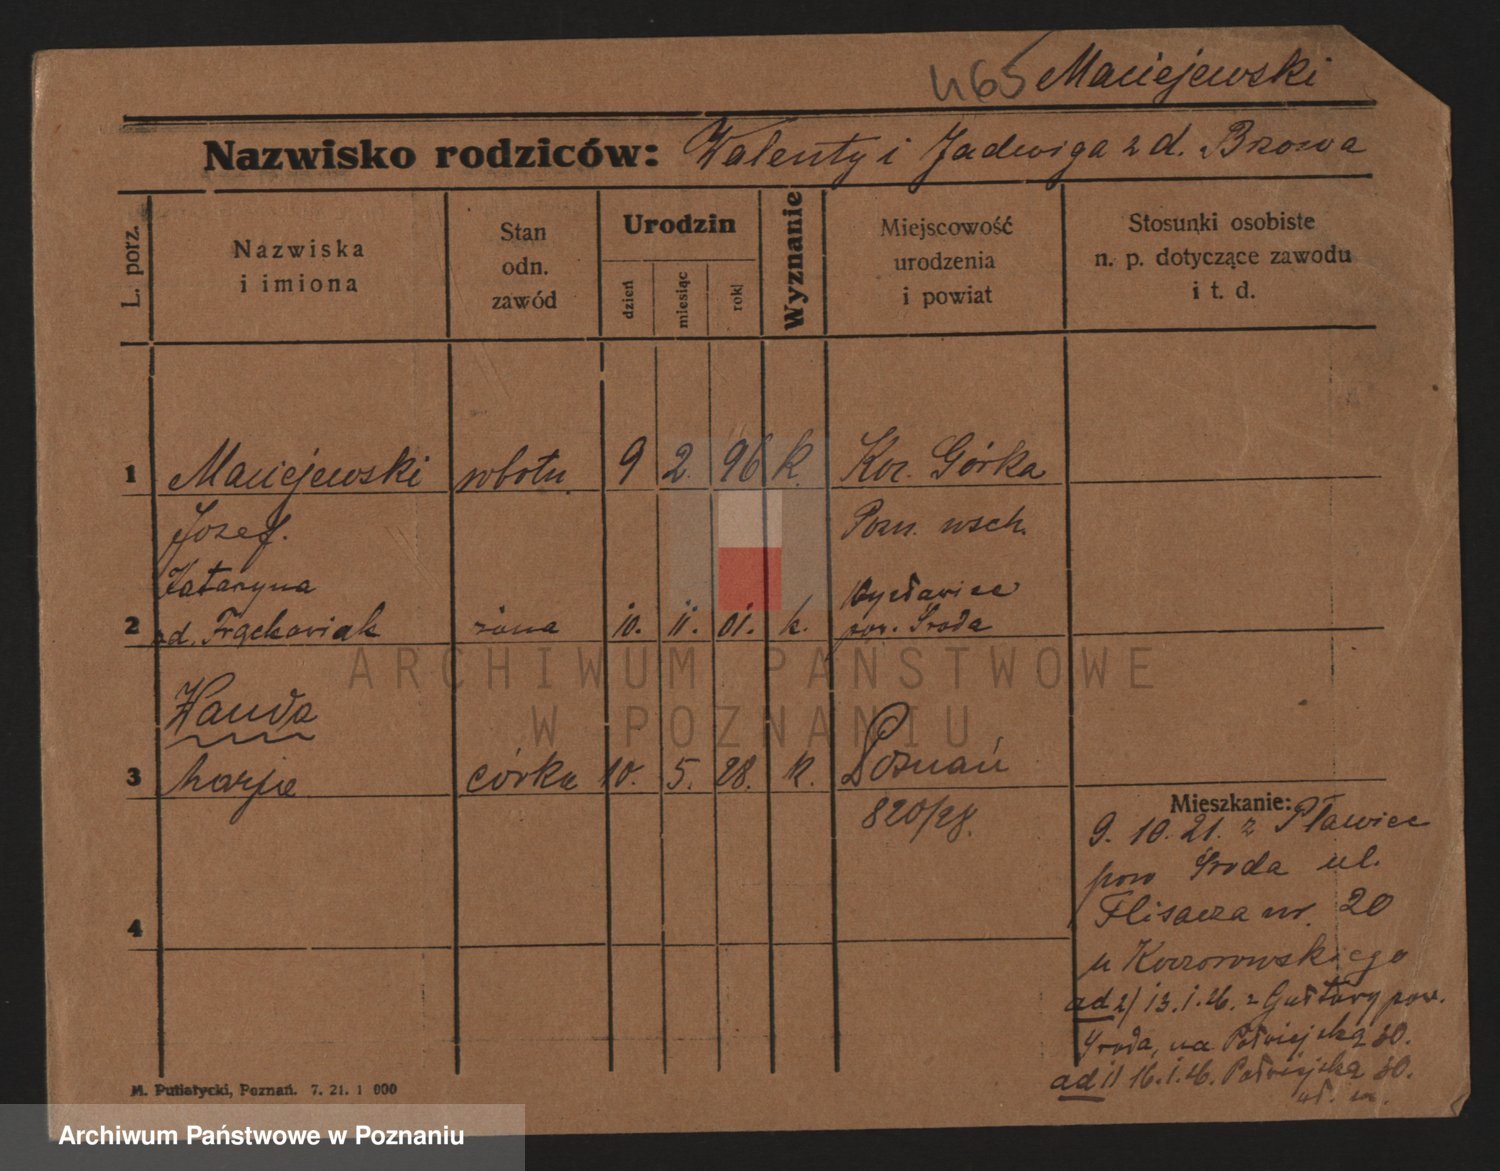 465 Maciejewski
Nazwisko rodziców: Walenty i Jadwiga z d. Brzoswa
L. porz.
Nazwiska
i imiona
Stan
odn.
zawód
Urodzin
dzień
miesiąc
rok
Wyznanie
Miejscowość
urodzenia
i powiat
Stosunki osobiste
n. p. dotyczące zawodu
i t. d.
1 Maciejewski robotn. 9 2. 96 k. Koz. Górka
Józef. Pozn. wsch.
Katarzyna
2 zd. Frąckowiak żona 10. 11. 01. k. pow. Środa
Wanda
3 Marja córka 10. 5. 28. k. Poznań
820/28.
Mieszkanie:
9. 10. 21. z Pławiec
pow Środa ul.
4
Flisacza nr. 20
u Koczorowskiego
ad 2/ 13. 1. 26. z Gułtowy pow.
Środa, na Półwiejską 30.
ad 1/ 16. 1. 26. Półwiejska 30.
M. Putiatycki, Poznań. 7. 21. 1 000
ARCHIWUM PAŃSTWOWE
W POZNANIU
Archiwum Państwowe w Poznaniu